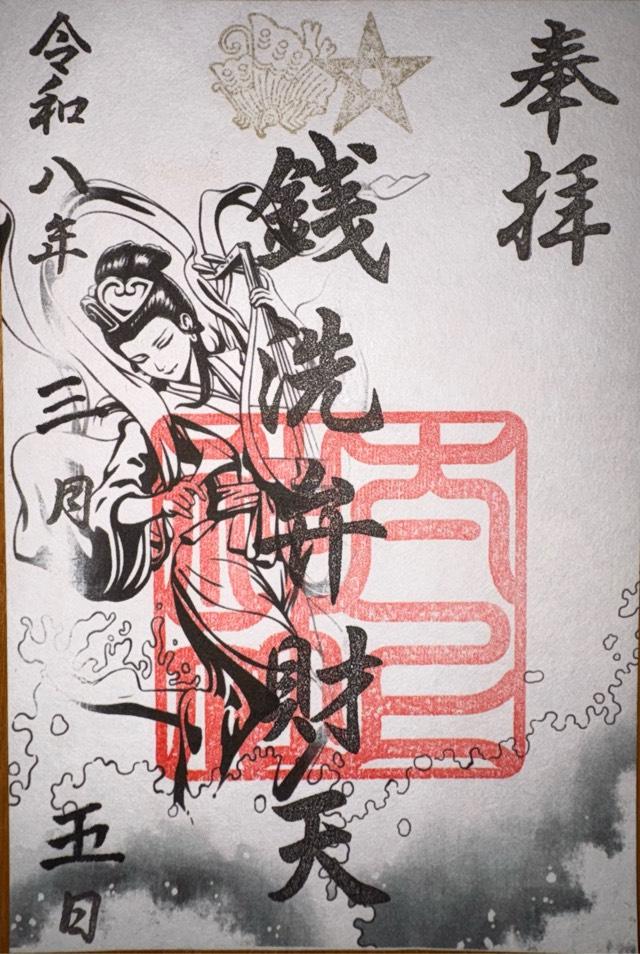 奉拝
銭洗弁財天
令和八年三月五日